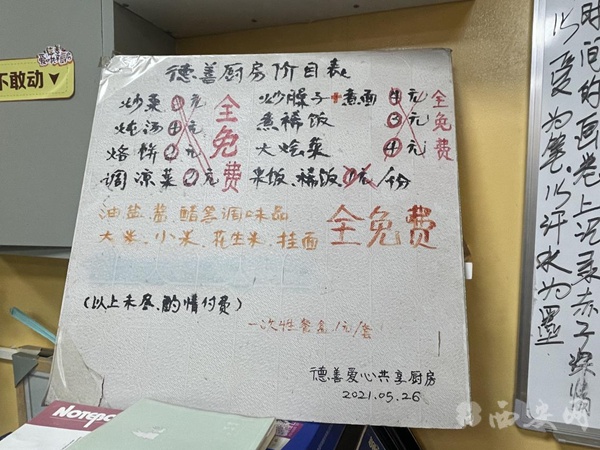 德善厨房价目表
炒菜 元
炖汤4元
烙饼 元
调凉菜 元
全免费
炒臊子+煮面4元
熬稀饭 3元
大烩菜 4元
米饭、稀饭、1元/份
全免费
油盐酱醋等调味品
大米、小米、花生米、挂面
全免费
(以上未尽、酌情付费)
一次性餐盒1元/套
德善爱心共享厨房
2021.05.26
不敢动
时间的画卷上记录赤子深情
以爱为笔以汗水为墨
Notepo
西安网